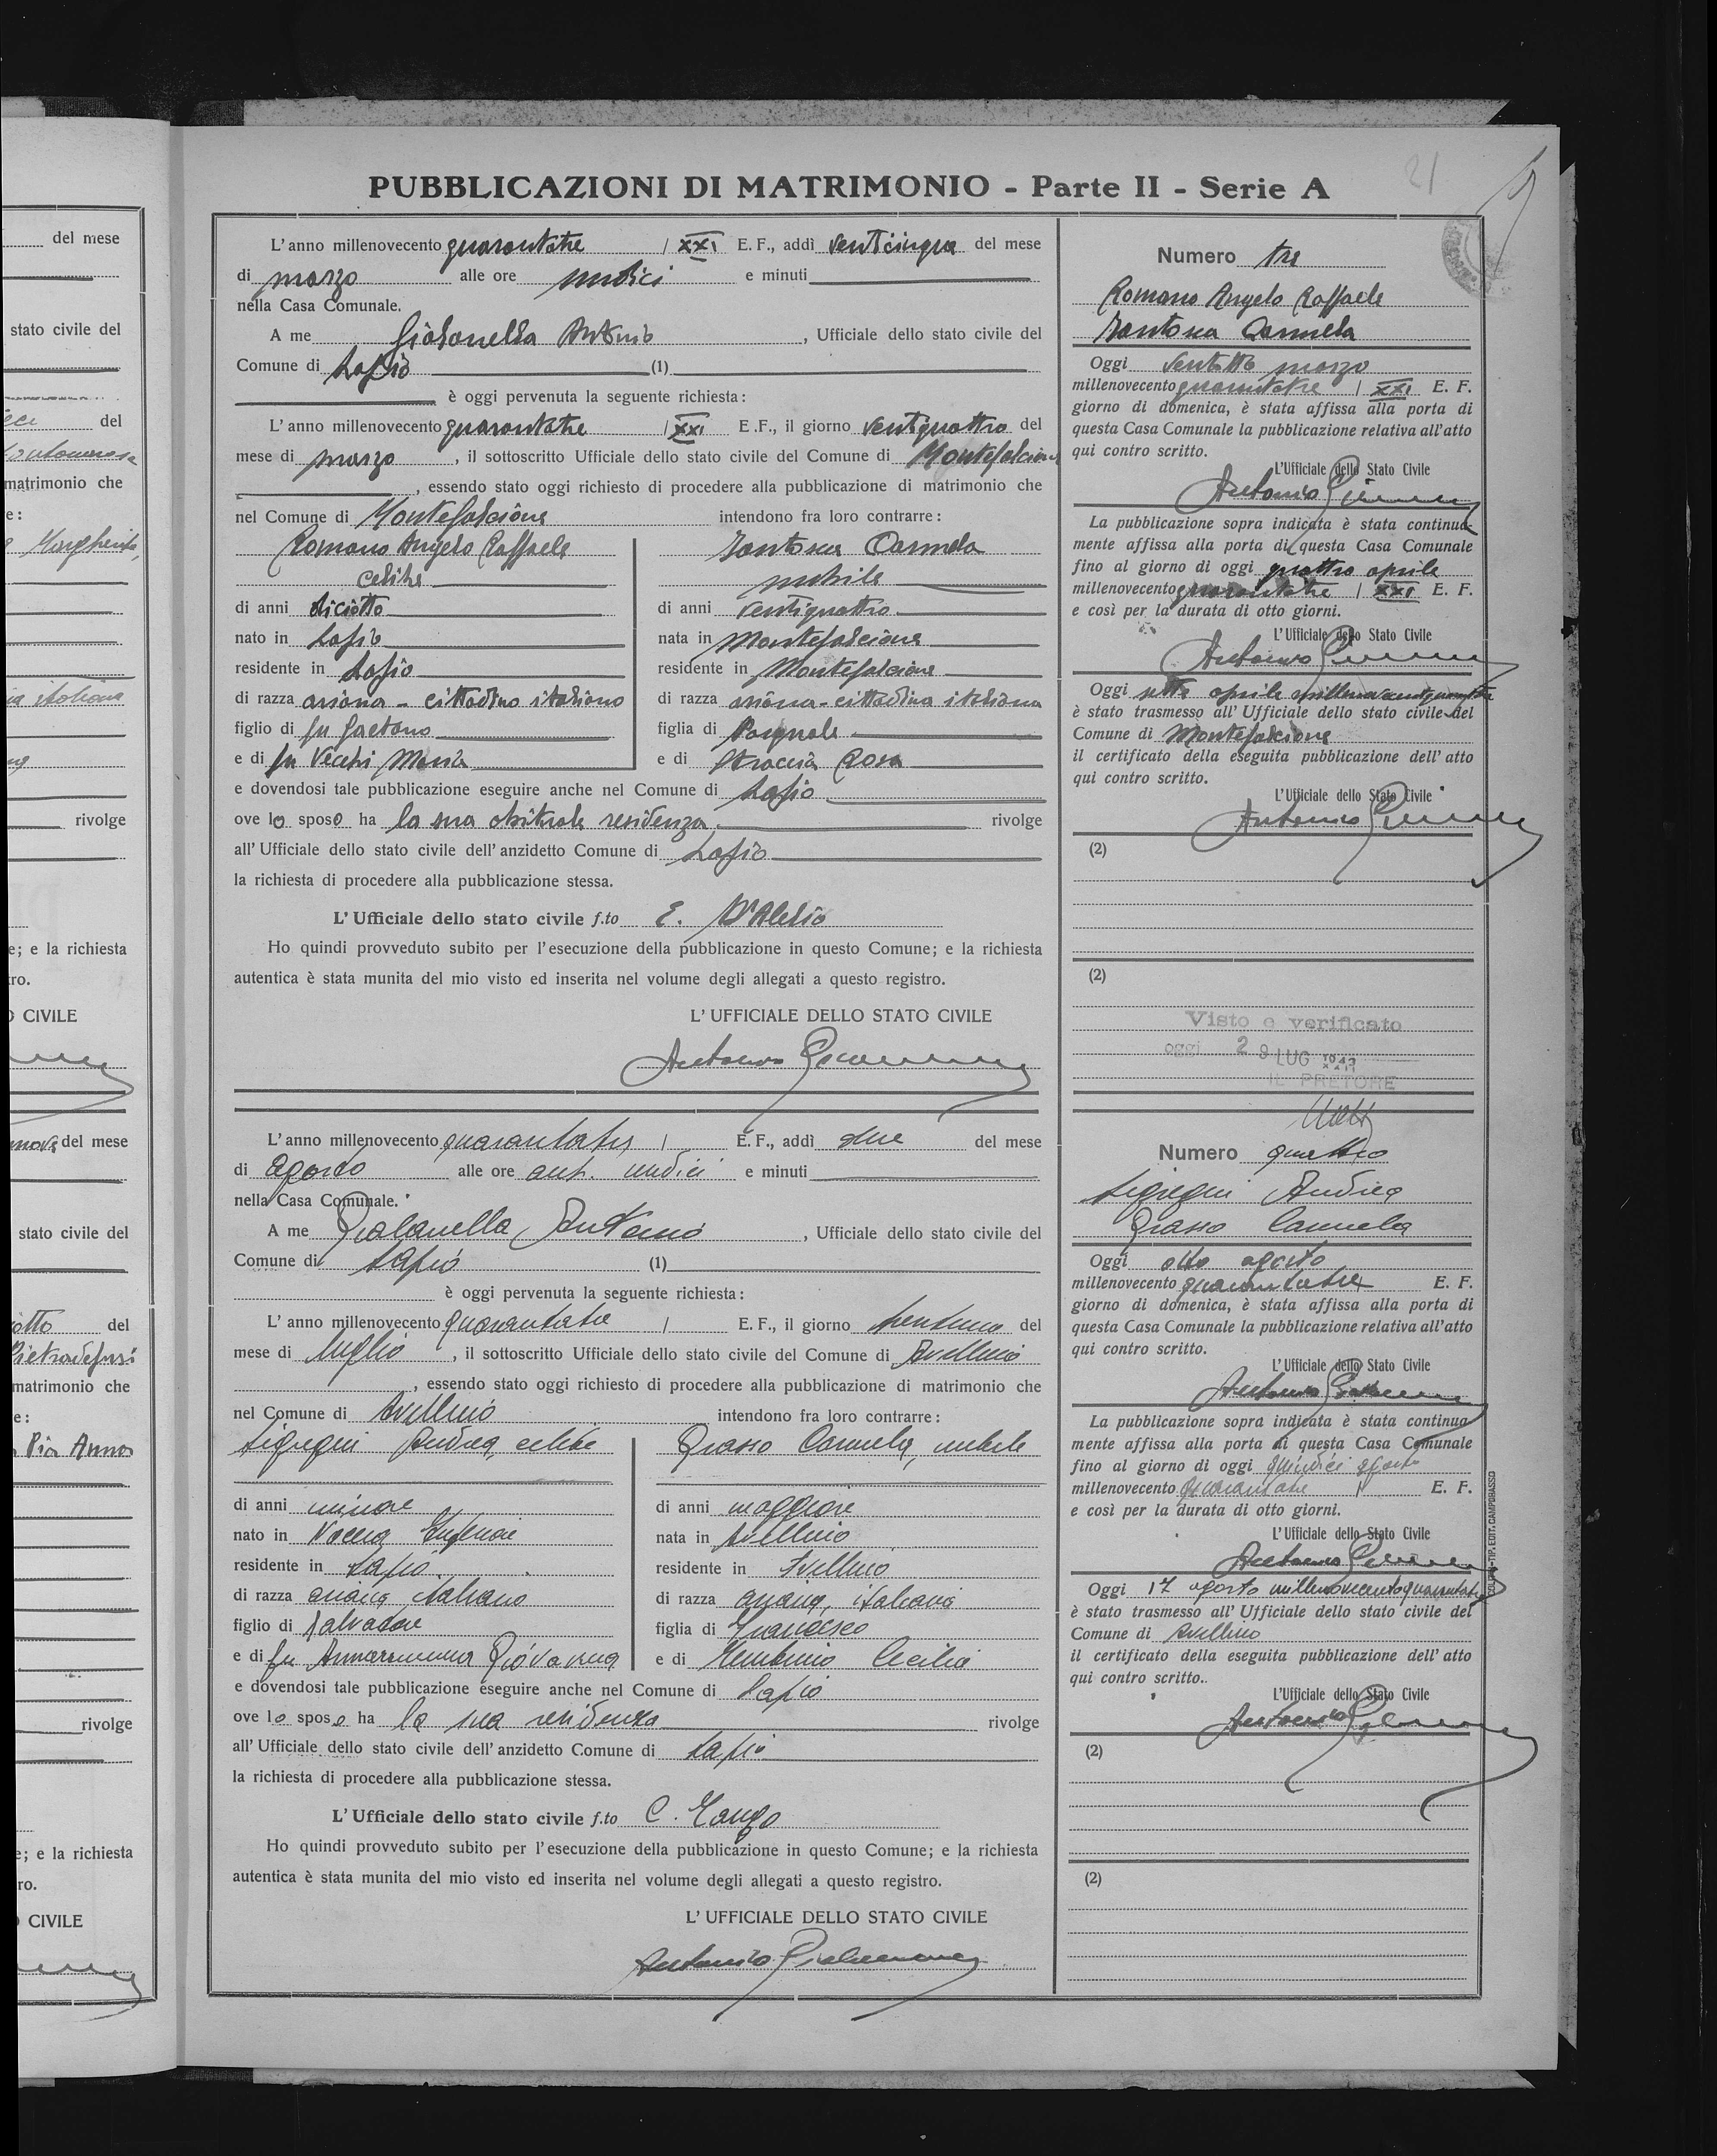 del mese
stato civile del
del
matrimonio che
e:
rivolge
e; e la richiesta
ro.
CIVILE
del mese
stato civile del
otto del
Pietradefusi
matrimonio che
e:
Pia Anna
rivolge
e; e la richiesta
ro.
CIVILE
21
PUBBLICAZIONI DI MATRIMONIO - Parte II - Serie A
L'anno millenovecento quarantatre / XXI E. F., addì venticinque del mese
di marzo alle ore undici e minuti
nella Casa Comunale.
A me Giovanella Antonio, Ufficiale dello stato civile del
Comune di Lapio (1)
è oggi pervenuta la seguente richiesta:
L'anno millenovecento quarantatre / XXI E.F., il giorno ventiquattro del
mese di marzo, il sottoscritto Ufficiale dello stato civile del Comune di Montefalcione
, essendo stato oggi richiesto di procedere alla pubblicazione di matrimonio che
nel Comune di Montefalcione intendono fra loro contrarre:
Romano Angelo Raffaele
celibe
di anni diciotto
nato in Lapio
residente in Lapio
di razza ariana - cittadino italiano
figlio di fu Gaetano
e di fu Vecchi Maria
Carmela
nubile
di anni ventiquattro
nata in Montefalcione
residente in Montefalcione
di razza ariana - cittadina italiana
figlia di Pasquale
e di Rosa
e dovendosi tale pubblicazione eseguire anche nel Comune di Lapio
ove lo sposo ha la sua abituale residenza rivolge
all'Ufficiale dello stato civile dell'anzidetto Comune di Lapio
la richiesta di procedere alla pubblicazione stessa.
L'Ufficiale dello stato civile f.to E. D'Alelio
Ho quindi provveduto subito per l'esecuzione della pubblicazione in questo Comune; e la richiesta
autentica è stata munita del mio visto ed inserita nel volume degli allegati a questo registro.
L'UFFICIALE DELLO STATO CIVILE
Antonio
Numero tre
Romano Angelo Raffaele
Carmela
Oggi ventotto marzo
millenovecento quarantatre / XXI E. F.
giorno di domenica, è stata affissa alla porta di
questa Casa Comunale la pubblicazione relativa all'atto
qui contro scritto.
L'Ufficiale dello Stato Civile
Antonio
La pubblicazione sopra indicata è stata continua-
mente affissa alla porta di questa Casa Comunale
fino al giorno di oggi quattro aprile
millenovecento quarantatre / XXI E. F.
e così per la durata di otto giorni.
L'Ufficiale dello Stato Civile
Antonio
Oggi sette aprile millenovecentoquarantatre
è stato trasmesso all'Ufficiale dello stato civile del
Comune di Montefalcione
il certificato della eseguita pubblicazione dell'atto
qui contro scritto.
L'Ufficiale dello Stato Civile
Antonio
(2)
(2)
Visto e verificato
oggi 29 LUG 1943
IL PRETORE
L'anno millenovecento quarantatre / E. F., addì due del mese
di agosto alle ore ant. undici e minuti
nella Casa Comunale.
A me Antonio, Ufficiale dello stato civile del
Comune di Lapio (1)
è oggi pervenuta la seguente richiesta:
L'anno millenovecento quarantatre / E. F., il giorno trentuno del
mese di luglio, il sottoscritto Ufficiale dello stato civile del Comune di Avellino
, essendo stato oggi richiesto di procedere alla pubblicazione di matrimonio che
nel Comune di Avellino intendono fra loro contrarre:
Andrea, celibe
di anni minore
nato in
residente in Lapio
di razza ariana italiano
figlio di Salvatore
e di fu Giovanna
Grasso Carmela, nubile
di anni maggiore
nata in Avellino
residente in Avellino
di razza ariana, italiana
figlia di Francesco
e di Cecilia
e dovendosi tale pubblicazione eseguire anche nel Comune di Lapio
ove lo sposo ha la sua residenza rivolge
all'Ufficiale dello stato civile dell'anzidetto Comune di Lapio
la richiesta di procedere alla pubblicazione stessa.
L'Ufficiale dello stato civile f.to C.
Ho quindi provveduto subito per l'esecuzione della pubblicazione in questo Comune; e la richiesta
autentica è stata munita del mio visto ed inserita nel volume degli allegati a questo registro.
L'UFFICIALE DELLO STATO CIVILE
Antonio
Numero quattro
Andrea
Grasso Carmela
Oggi otto agosto
millenovecento quarantatre E. F.
giorno di domenica, è stata affissa alla porta di
questa Casa Comunale la pubblicazione relativa all'atto
qui contro scritto.
L'Ufficiale dello Stato Civile
Antonio
La pubblicazione sopra indicata è stata continua-
mente affissa alla porta di questa Casa Comunale
fino al giorno di oggi quindici agosto
millenovecento quarantatre / E. F.
e così per la durata di otto giorni.
L'Ufficiale dello Stato Civile
Antonio
Oggi 17 agosto millenovecentoquarantatre
è stato trasmesso all'Ufficiale dello stato civile del
Comune di Avellino
il certificato della eseguita pubblicazione dell'atto
qui contro scritto.
L'Ufficiale dello Stato Civile
Antonio
(2)
(2)
TIP. EDIT. CAMPOBASSO